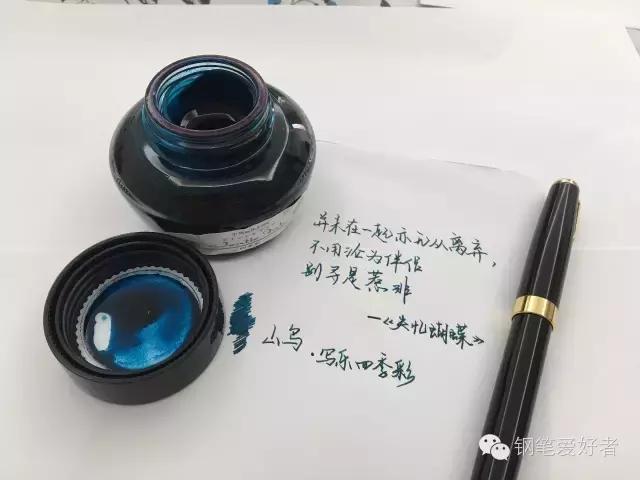 并未在一起亦无从离弃,
不用沦为伴侣
别寻是惹非
—《失忆蝴蝶》
山鸟·写乐四季彩
钢笔爱好者